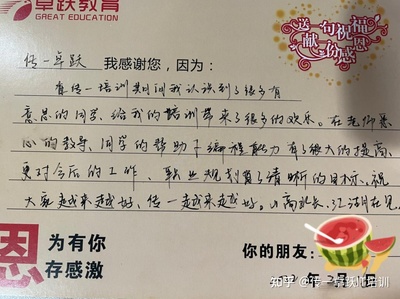 卓跃教育
GREAT EDUCATION
送一句祝福
献一份感恩
传一卓跃 我感谢您,因为:
在传一培训期间我认识到了很多有
意思的同学,给我的培训带来了很多的欢乐。在老师悉
心的教导、同学的帮助下编程能力有了很大的提高、
更对今后的工作、职业规划有了清晰的目标、祝
大家越来越好、传一越来越好。山高水长、江湖再见
恩
为有你
存感激
你的朋友:
年 月
知乎 @传一卓跃帅培训